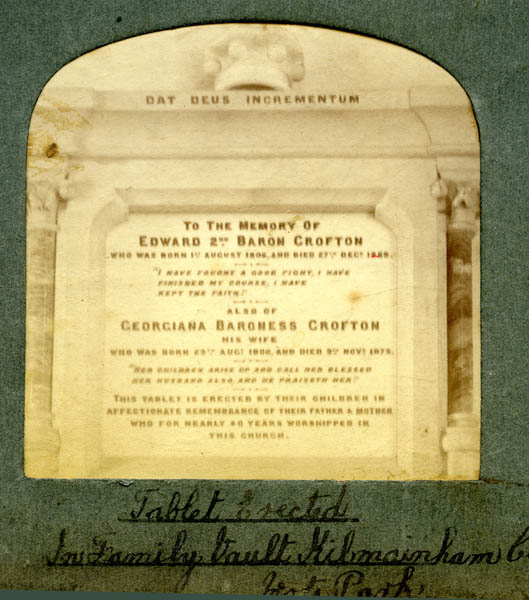 DAT DEUS INCREMENTUM
TO THE MEMORY OF
EDWARD 2ND BARON CROFTON
WHO WAS BORN 1ST AUGUST 1806, AND DIED 27TH DECR
"I HAVE FOUGHT A GOOD FIGHT, I HAVE
FINISHED MY COURSE, I HAVE
KEPT THE FAITH."
ALSO OF
GEORGIANA BARONESS CROFTON
HIS WIFE
WHO WAS BORN AUGT AND DIED 9TH NOVR
"HER CHILDREN ARISE UP AND CALL HER BLESSED
HER HUSBAND ALSO, AND HE PRAISETH HER."
THIS TABLET IS ERECTED BY THEIR CHILDREN IN
AFFECTIONATE REMEMBRANCE OF THEIR FATHER & MOTHER
WHO FOR NEARLY 40 YEARS WORSHIPPED IN
THIS CHURCH.
Tablet Erected
In Family Vault Kilmainham
Park